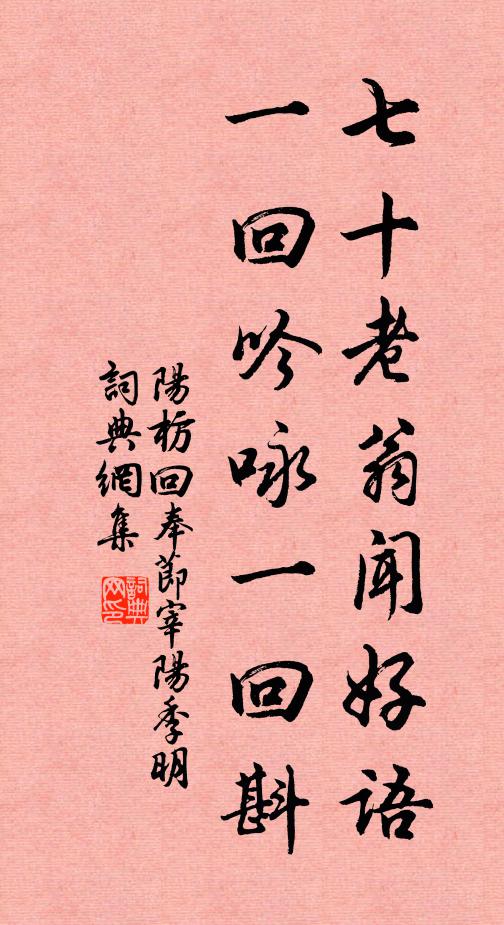 七十老翁聞好語
一回吟咏一回斟
陽枋回奉節宰陽季明
詞典網集
詞典网印